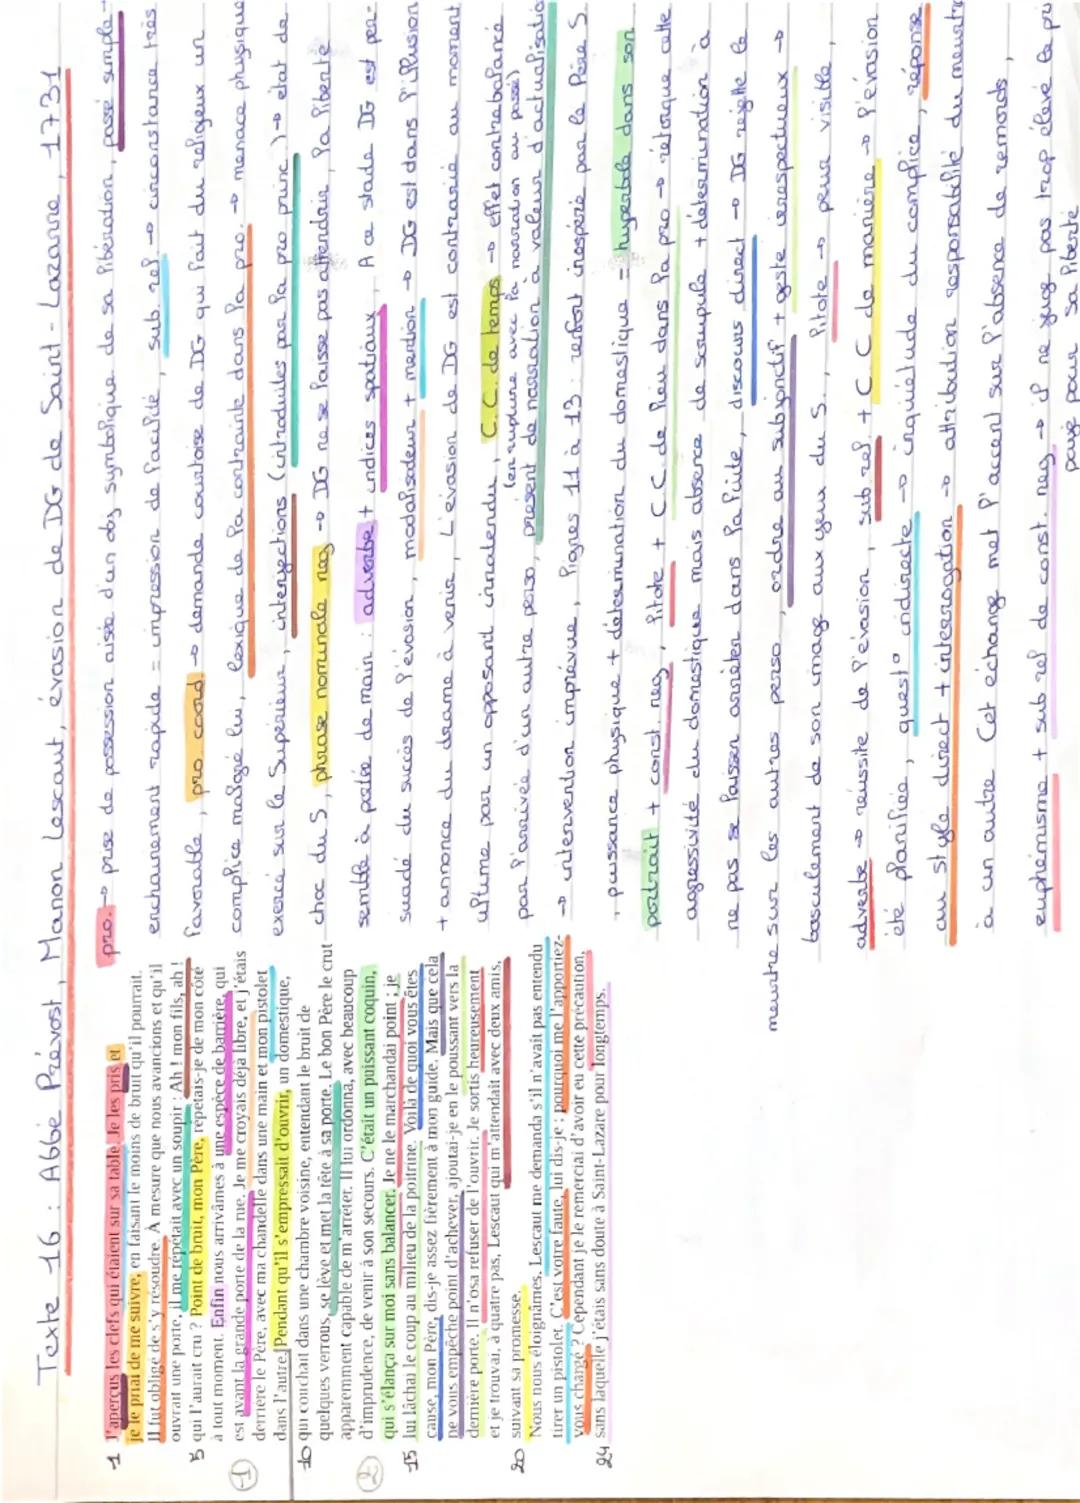 Texte 16 : Abbé Prévost, Manon Lescaut, évasion de DG de Saint-Lazare, 1731
1 J'aperçus les clefs qui étaient sur sa table. Je les pris et
je le priai de me suivre, en faisant le moins de bruit qu'il pourrait.
Il fut obligé de s'y résoudre. À mesure que nous avancions et qu'il
ouvrait une porte, il me répétait avec un soupir : Ah ! mon fils, ah !
5 qui l'aurait cru ? Point de bruit, mon Père, répétais-je de mon côté
à tout moment. Enfin nous arrivâmes à une espèce de barrière, qui
est avant la grande porte de la rue. Je me croyais déjà libre, et j'étais
derrière le Père, avec ma chandelle dans une main et mon pistolet
dans l'autre. Pendant qu'il s'empressait d'ouvrir, un domestique,
10 qui couchait dans une chambre voisine, entendant le bruit de
quelques verrous, se lève et met la tête à sa porte. Le bon Père le crut
apparemment capable de m'arrêter. Il lui ordonna, avec beaucoup
d'imprudence, de venir à son secours. C'était un puissant coquin,
qui s'élança sur moi sans balancer. Je ne le marchandai point ; je
15 lui lâchai le coup au milieu de la poitrine. Voilà de quoi vous êtes
cause, mon Père, dis-je assez fièrement à mon guide. Mais que cela
ne vous empêche point d'achever, ajoutai-je en le poussant vers la
dernière porte. Il n'osa refuser de l'ouvrir. Je sortis heureusement
et je trouvai, à quatre pas, Lescaut qui m'attendait avec deux amis,
20 suivant sa promesse.
Nous nous éloignâmes. Lescaut me demanda s'il n'avait pas entendu
tirer un pistolet. C'est votre faute, lui dis-je ; pourquoi me l'apportiez-
vous chargé ? Cependant je le remerciai d'avoir eu cette précaution,
24 sans laquelle j'étais sans doute à Saint-Lazare pour longtemps.
1
2
pro. → prise de possession aisée d'un obj symbolique de sa libération, passé simple →
enchaînement rapide = impression de facilité, sub. rel. → circonstance très
favorable, pro coord → demande courtoise de DG qui fait du religieux un
complice malgré lui, lexique de la contrainte dans la pro. → menace physique
exercé sur le Supérieur, interjections (introduites par la pro princ.) → état de
choc du S, phrase nominale nég → DG ne se laisse pas attendrir, la liberté
semble à portée de main : adverbe + indices spatiaux, A ce stade DG est per-
suadé du succès de l'évasion, modalisateur + mention → DG est dans l'illusion
+ annonce du drame à venir, L'évasion de DG est contrarié au moment
ultime par un opposant inattendu, C.C. de temps → effet contrebalancé
par l'arrivée d'un autre perso, présent de narration à valeur d'actualisation
(en rupture avec la narration au passé)
→ intervention imprévue, lignes 11 à 13 : renfort inespéré par le Père S
, puissance physique + détermination du domestique = hyperbole dans son
portrait + const. nég, litote + C.C. de lieu dans la pro → rétorque cette
agressivité du domestique mais absence de scrupule + détermination à
ne pas se laisser arrêter dans la fuite, discours direct → DG rejette le
meurtre sur les autres perso, ordre au subjonctif + geste irrespectueux →
basculement de son image aux yeux du S., litote → peur visible,
adverbe → réussite de l'évasion, sub rel. + C.C de manière → l'évasion
été planifiée, quest° indirecte → inquiétude du complice, réponse
au style direct + interrogation → attribution responsabilité du meurtre
à un autre Cet échange met l'accent sur l'absence de remords,
euphémisme + sub rel de const. neg → il ne juge pas trop élevé le prix
payé pour sa liberté